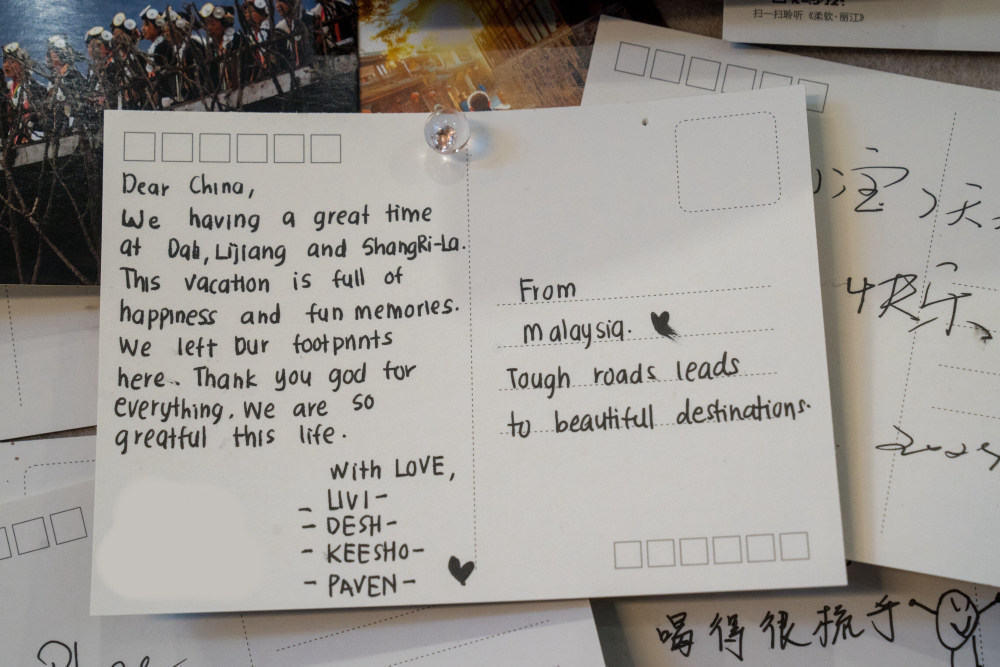 扫一扫聆听《柔软·丽江》
Dear China,
We having a great time
at Dali, Lijiang and ShangRi-La.
This vacation is full of
happiness and fun memories.
We left our footprints
here.. Thank you god for
everything. We are so
greatful this life.
With LOVE,
- LIVI -
- DESH -
- KEESHO -
- PAVEN -
From
malaysia.
Tough roads leads
to beautiful destinations.
快乐
喝得很